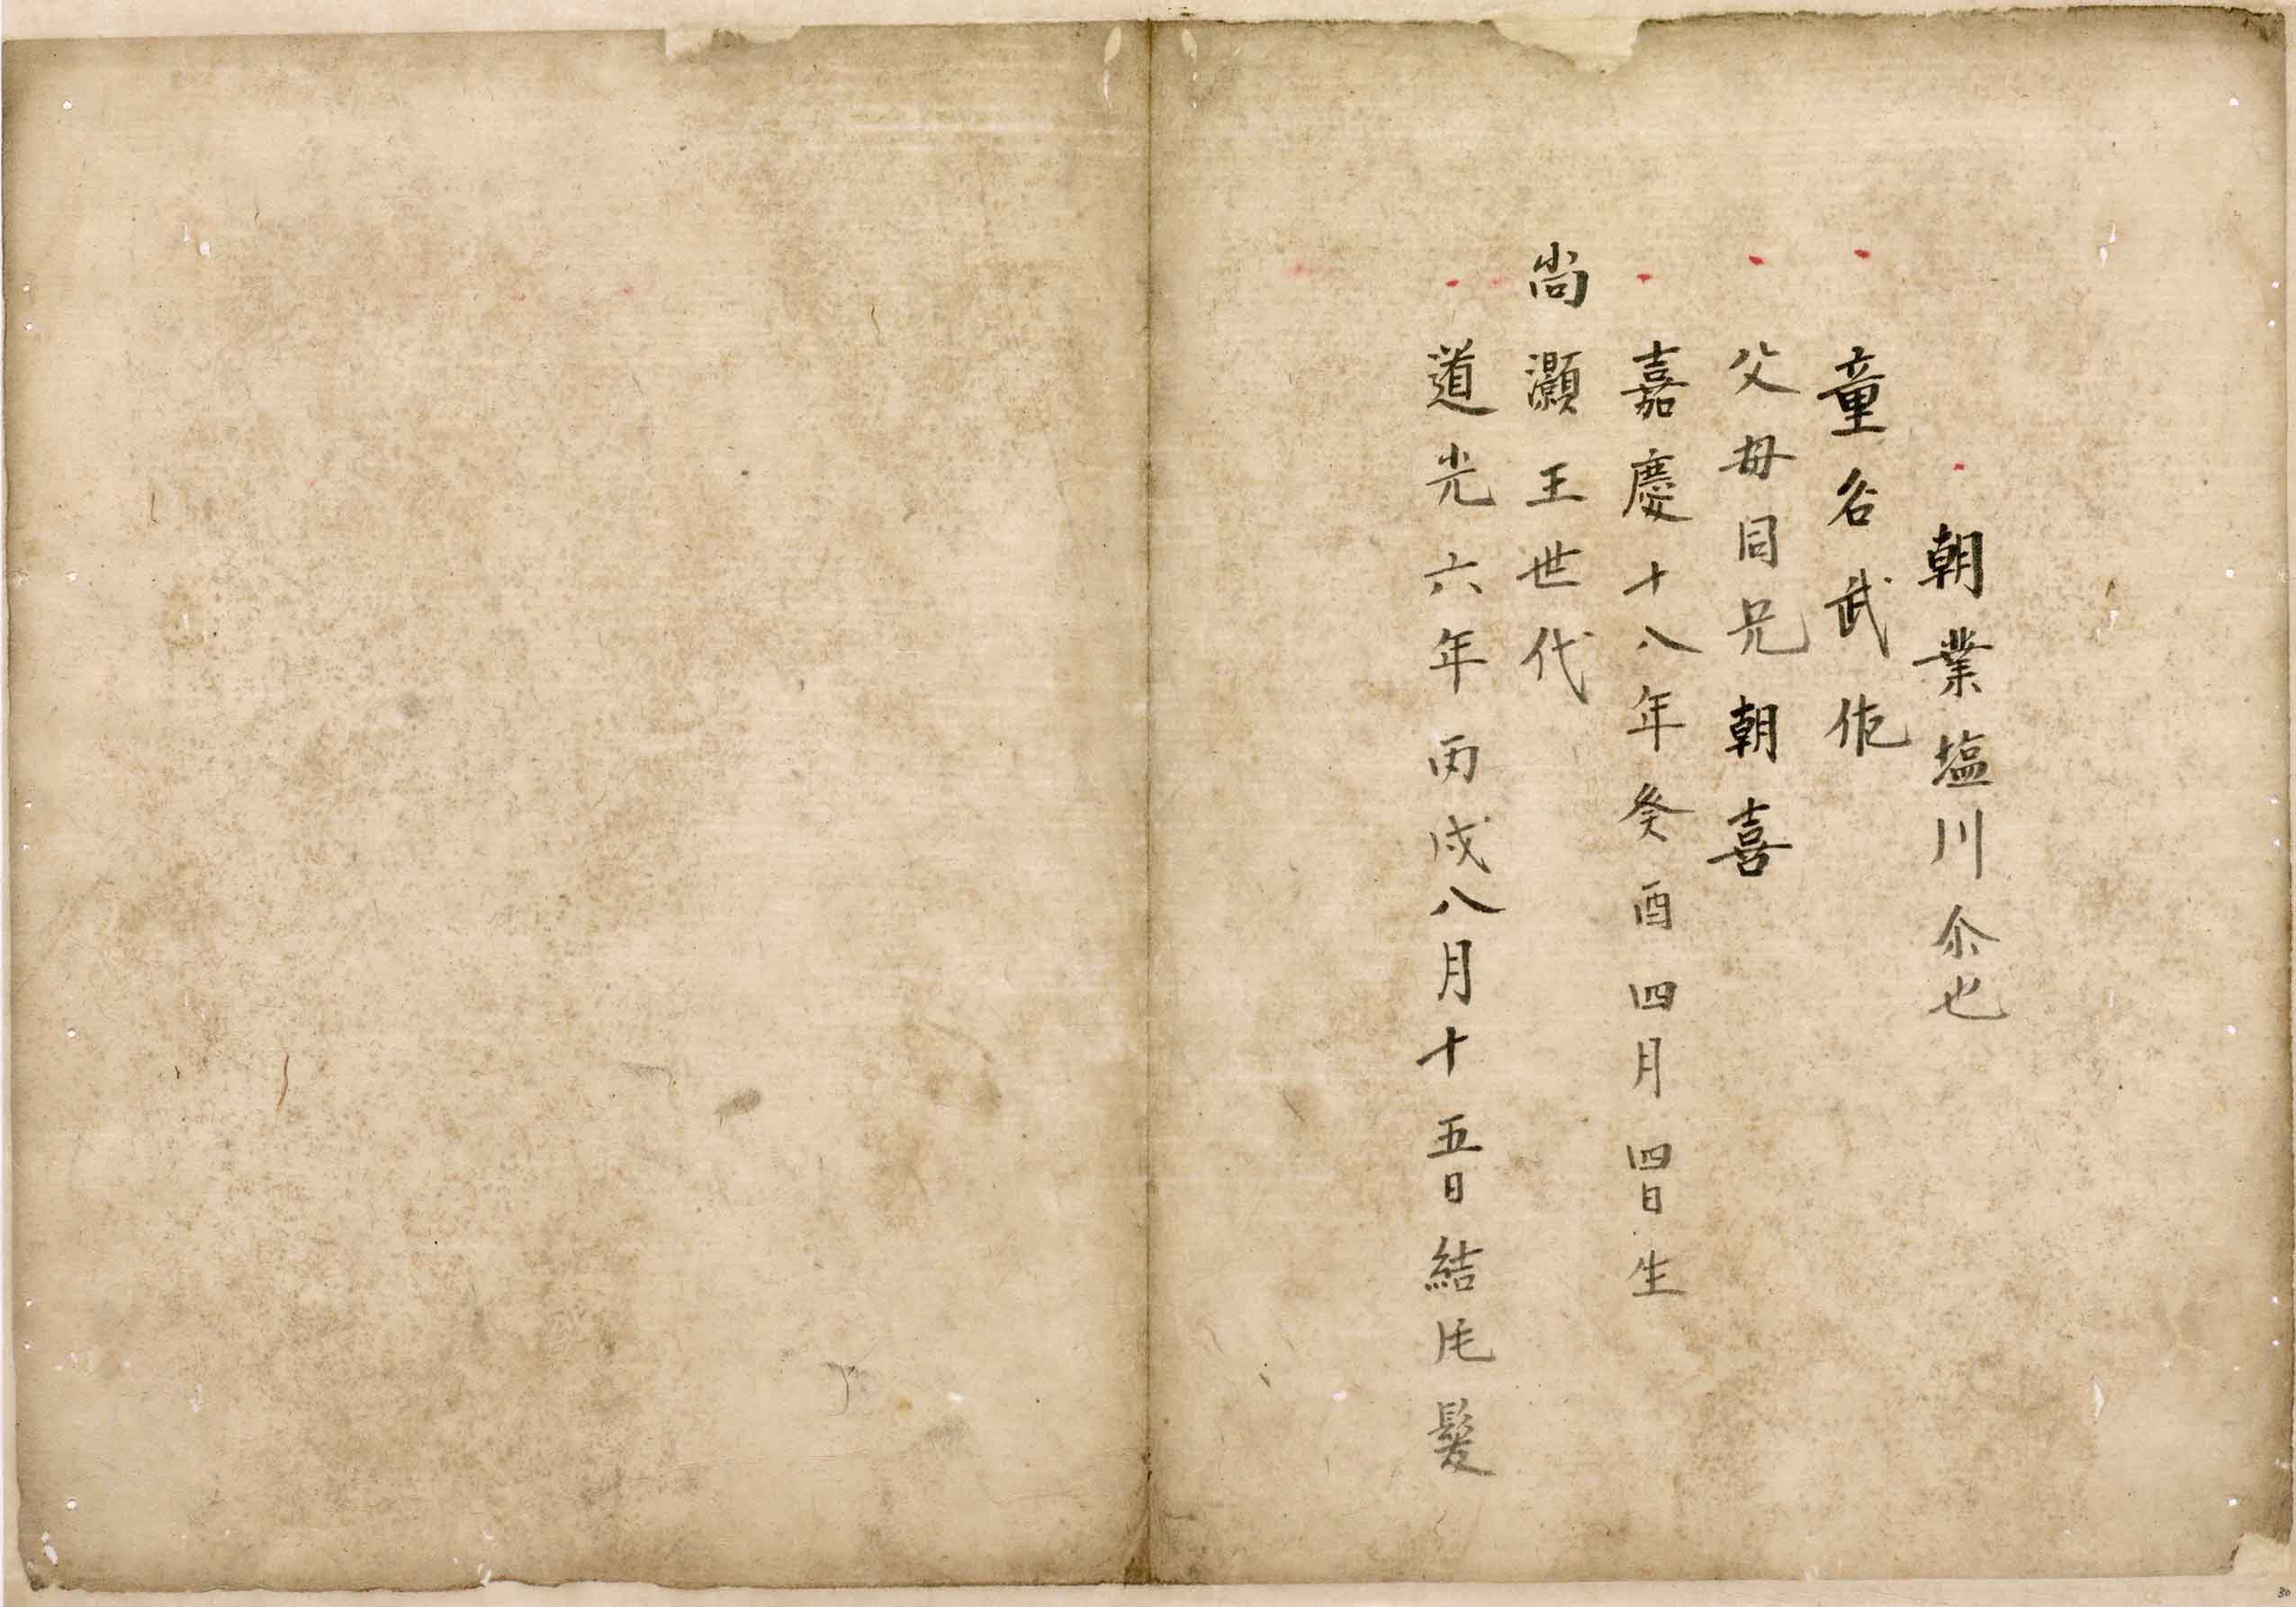 朝業塩川尒也
童名武佗
父母同兄朝喜
嘉慶十八年癸酉四月四日生
尚灝王世代
道光六年丙戌八月十五日結片髪
30